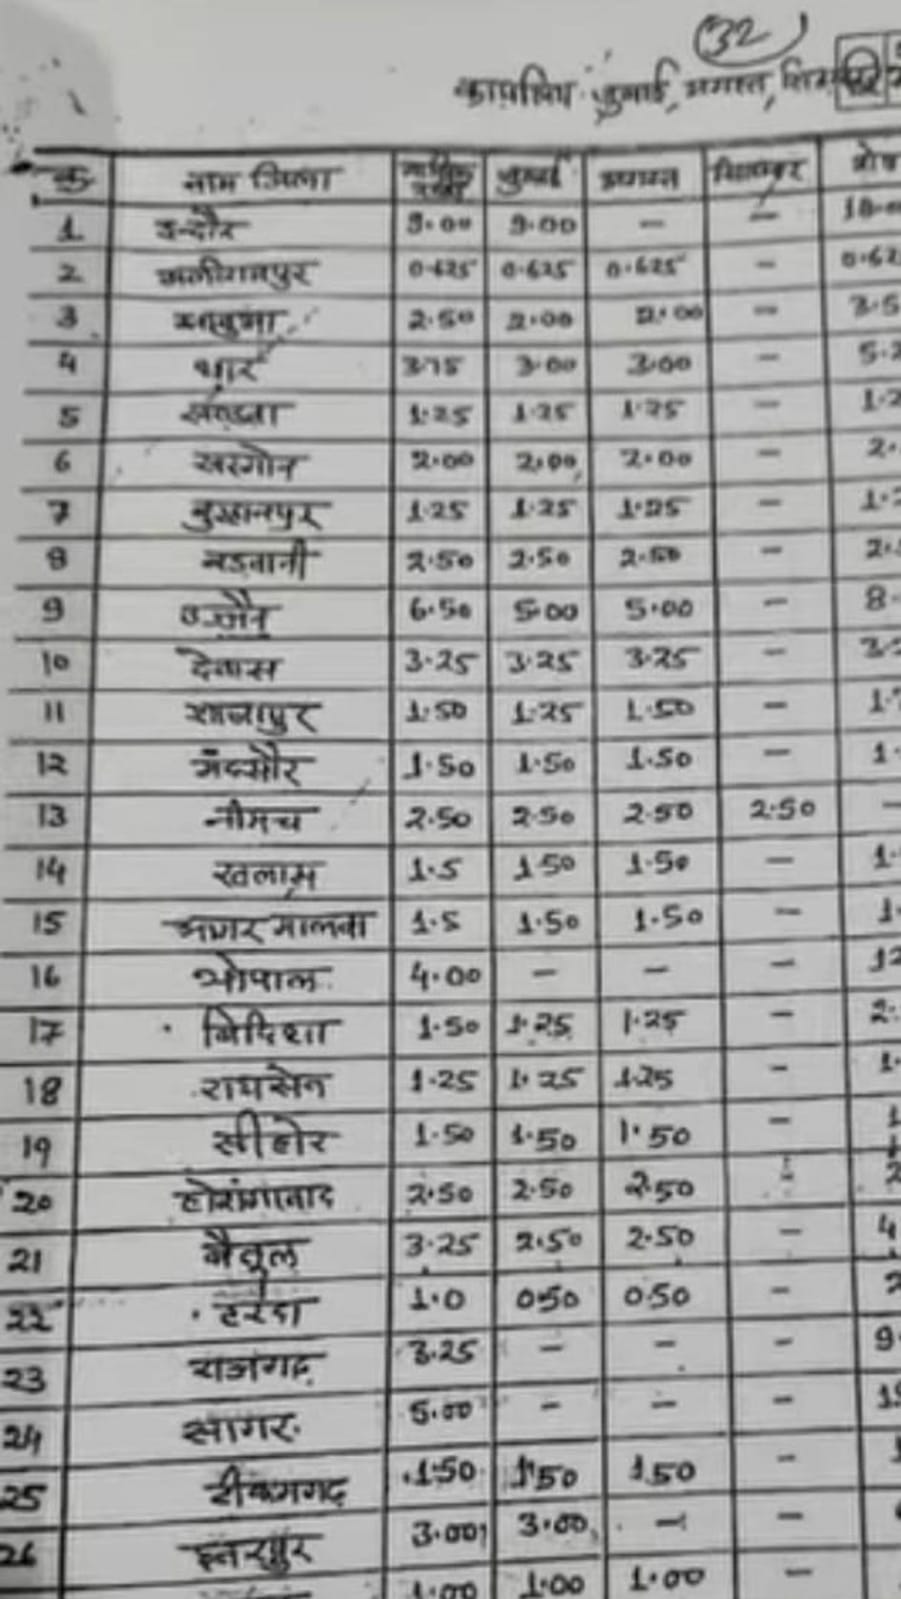 32
जुलाई, अगस्त,
क्र नाम जिला जुलाई अगस्त सितम्बर शेष
1 इन्दौर 9.00 9.00 — —
2 अलीराजपुर 0.625 0.625 0.625 —
3 झाबुआ 2.50 2.00 2.00 —
4 धार 3.75 3.00 3.00 —
5 खण्डवा 1.25 1.25 1.25 —
6 खरगोन 2.00 2.00 2.00 —
7 बुरहानपुर 1.25 1.25 1.25 —
8 बड़वानी 2.50 2.50 2.50 —
9 उज्जैन 6.50 5.00 5.00 —
10 देवास 3.25 3.25 3.25 —
11 शाजापुर 1.50 1.25 1.50 —
12 मंदसौर 1.50 1.50 1.50 —
13 नीमच 2.50 2.50 2.50 2.50 —
14 रतलाम 1.5 1.50 1.50 —
15 आगर मालवा 1.5 1.50 1.50 —
16 भोपाल 4.00 — — — 12
17 विदिशा 1.50 1.25 1.25 —
18 रायसेन 1.25 1.25 1.25 —
19 सीहोर 1.50 1.50 1.50 —
20 होशंगाबाद 2.50 2.50 2.50
21 बैतूल 3.25 2.50 2.50 — 4
22 हरदा 1.0 0.50 0.50 —
23 राजगढ़ 3.25 — — —
24 सागर 5.00 — — —
25 टीकमगढ़ 1.50 1.50 1.50 —
26 छतरपुर 3.00 3.00 — —
1.00 1.00 1.00 —